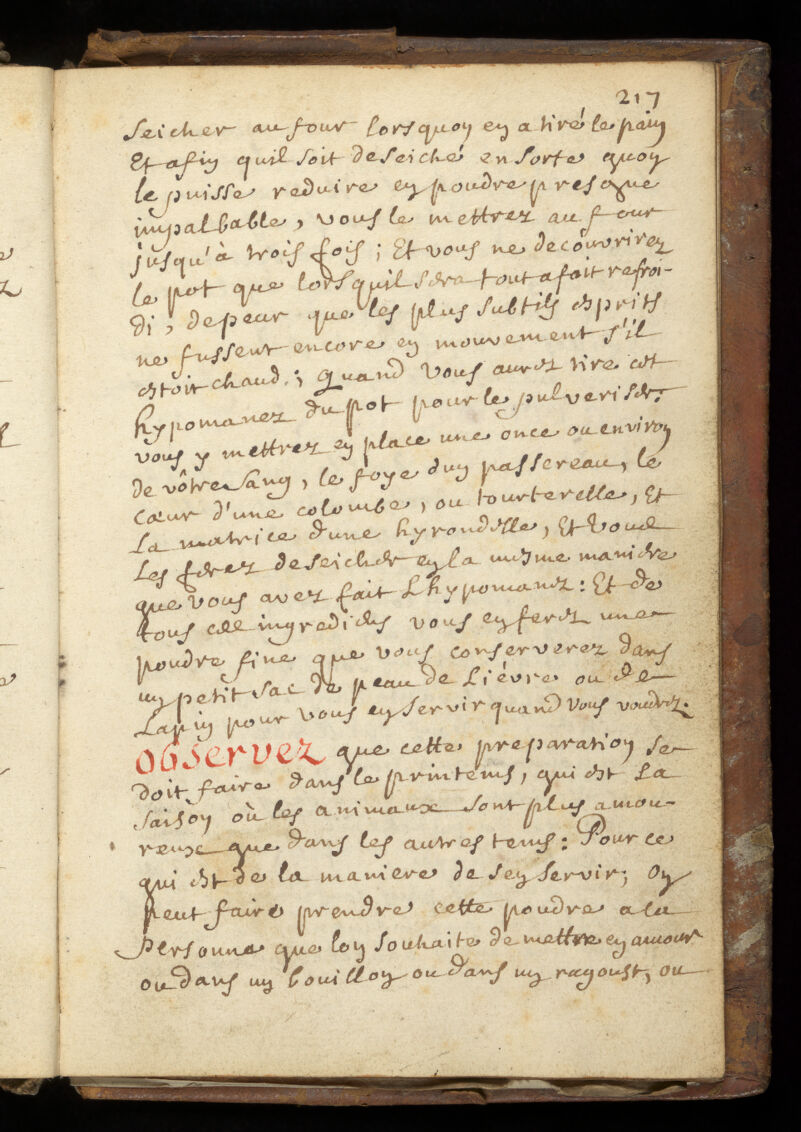 217
seicher au four lorsquon en a tiré le pain
Et afin quil soit deseiché en sorte quon
le puisse reduire en poudre presque
impalbable, vous le mettrez au four
jusqu'à trois fois; Et vous ne decouvrirez
le pot que lorsquil sera tout a fait refroi-
di, depeur que les plus subtils esprits
ne fussent encore en mouvement s'il
estoit chaud; Quand vous aurez tire cet
hypomanez du pot pour le pulveriser.
vous y mettrez en place une once ou environ
de vôtre sang, le foye d'un passereau, le
cœur d'une colombe, ou tourterelle, Et
La matrice d'une hyrondelle, Et vous
Les ferez deseicher en la mesme maniere
que vous avez fait Lhypomanez: Et de
tous ces ingrediens vous en ferez une
poudre fine que vous conserverez dans
un petit sac de peau de Liévre ou de
Lapin pour vous en servir quand vous voudrez.
Observez que cette preparation se
doit faire dans le printems, qui est La
saison où les animaux sont plus amou-
reux que dans les autres tems: Pour ce
qui est de la maniere de sen servir; On
peut faire prendre cette poudre a la
personne que lon souhaite de mettre en amour
ou dans un bouillon ou dans un ragoust, ou